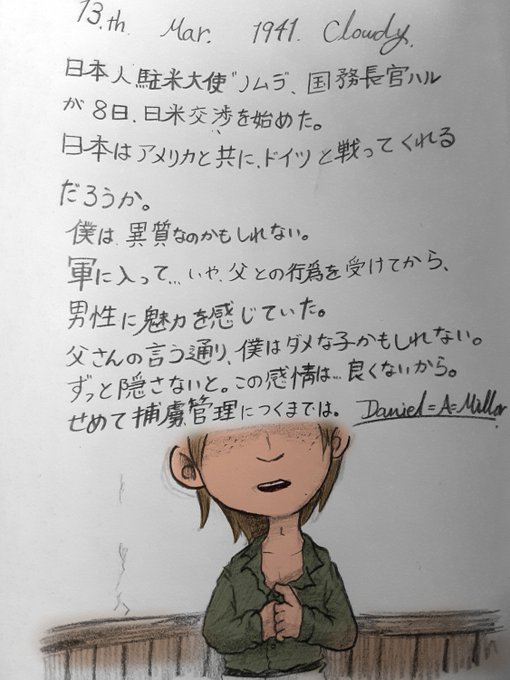 13.th Mar. 1941. Cloudy.
日本人駐米大使"ノムラ"、国務長官ハル
が8日、日米交渉を始めた。
日本はアメリカと共に、ドイツと戦ってくれる
だろうか。
僕は、異質なのかもしれない。
軍に入って…いや、父との行為を受けてから、
男性に魅力を感じていた。
父さんの言う通り、僕はダメな子かもしれない。
ずっと隠さないと。この感情は…良くないから。
せめて捕虜管理につくまでは。 Daniel=A=Miller